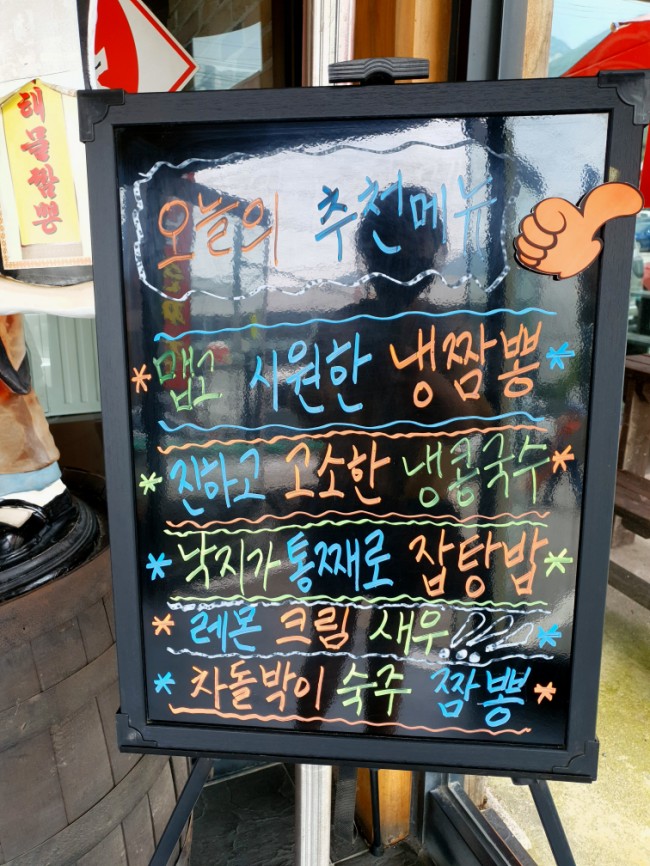 해물짬뽕
오늘의 추천메뉴
맵고 시원한 냉짬뽕
진하고 고소한 냉콩국수
낙지가 통째로 잡탕밥
레몬 크림 새우
차돌박이 숙주 짬뽕